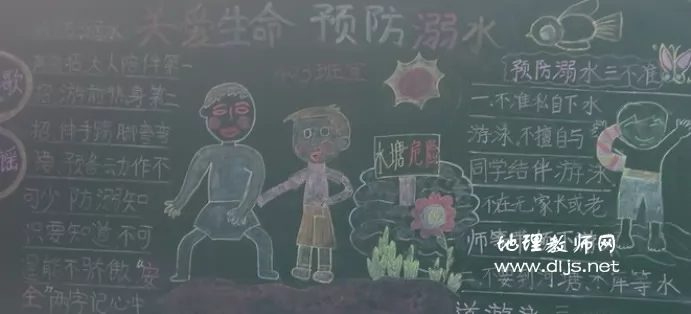 关爱生命 预防溺水
歌
谣
大人陪伴第一
招，游前热身第二
招，伸手踢脚弯弯
腰，预备运动作不
可少，防溺知
只要知道，不可
骄傲，"安
全"两字记心中
水塘危险
预防溺水三不准
一不准私自下水
游泳，不擅自与
同学结伴游泳，
不在无家长或老
师
不要到河塘、水库等水
道游泳
地理教师网
www.dljs.net